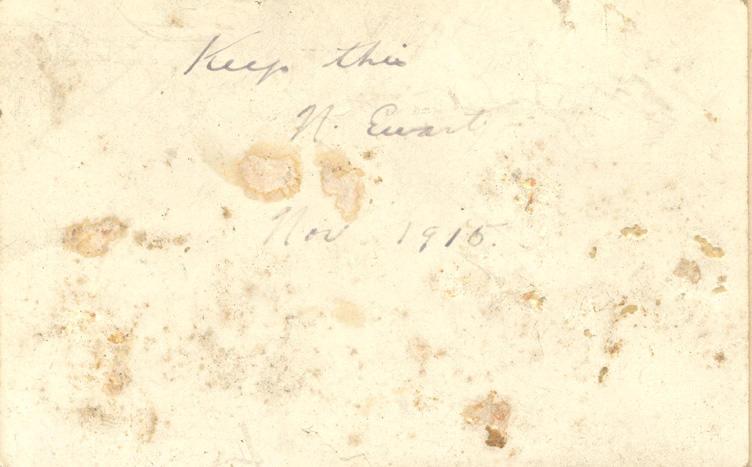 Keep this
N. Ewart
Nov 1915.